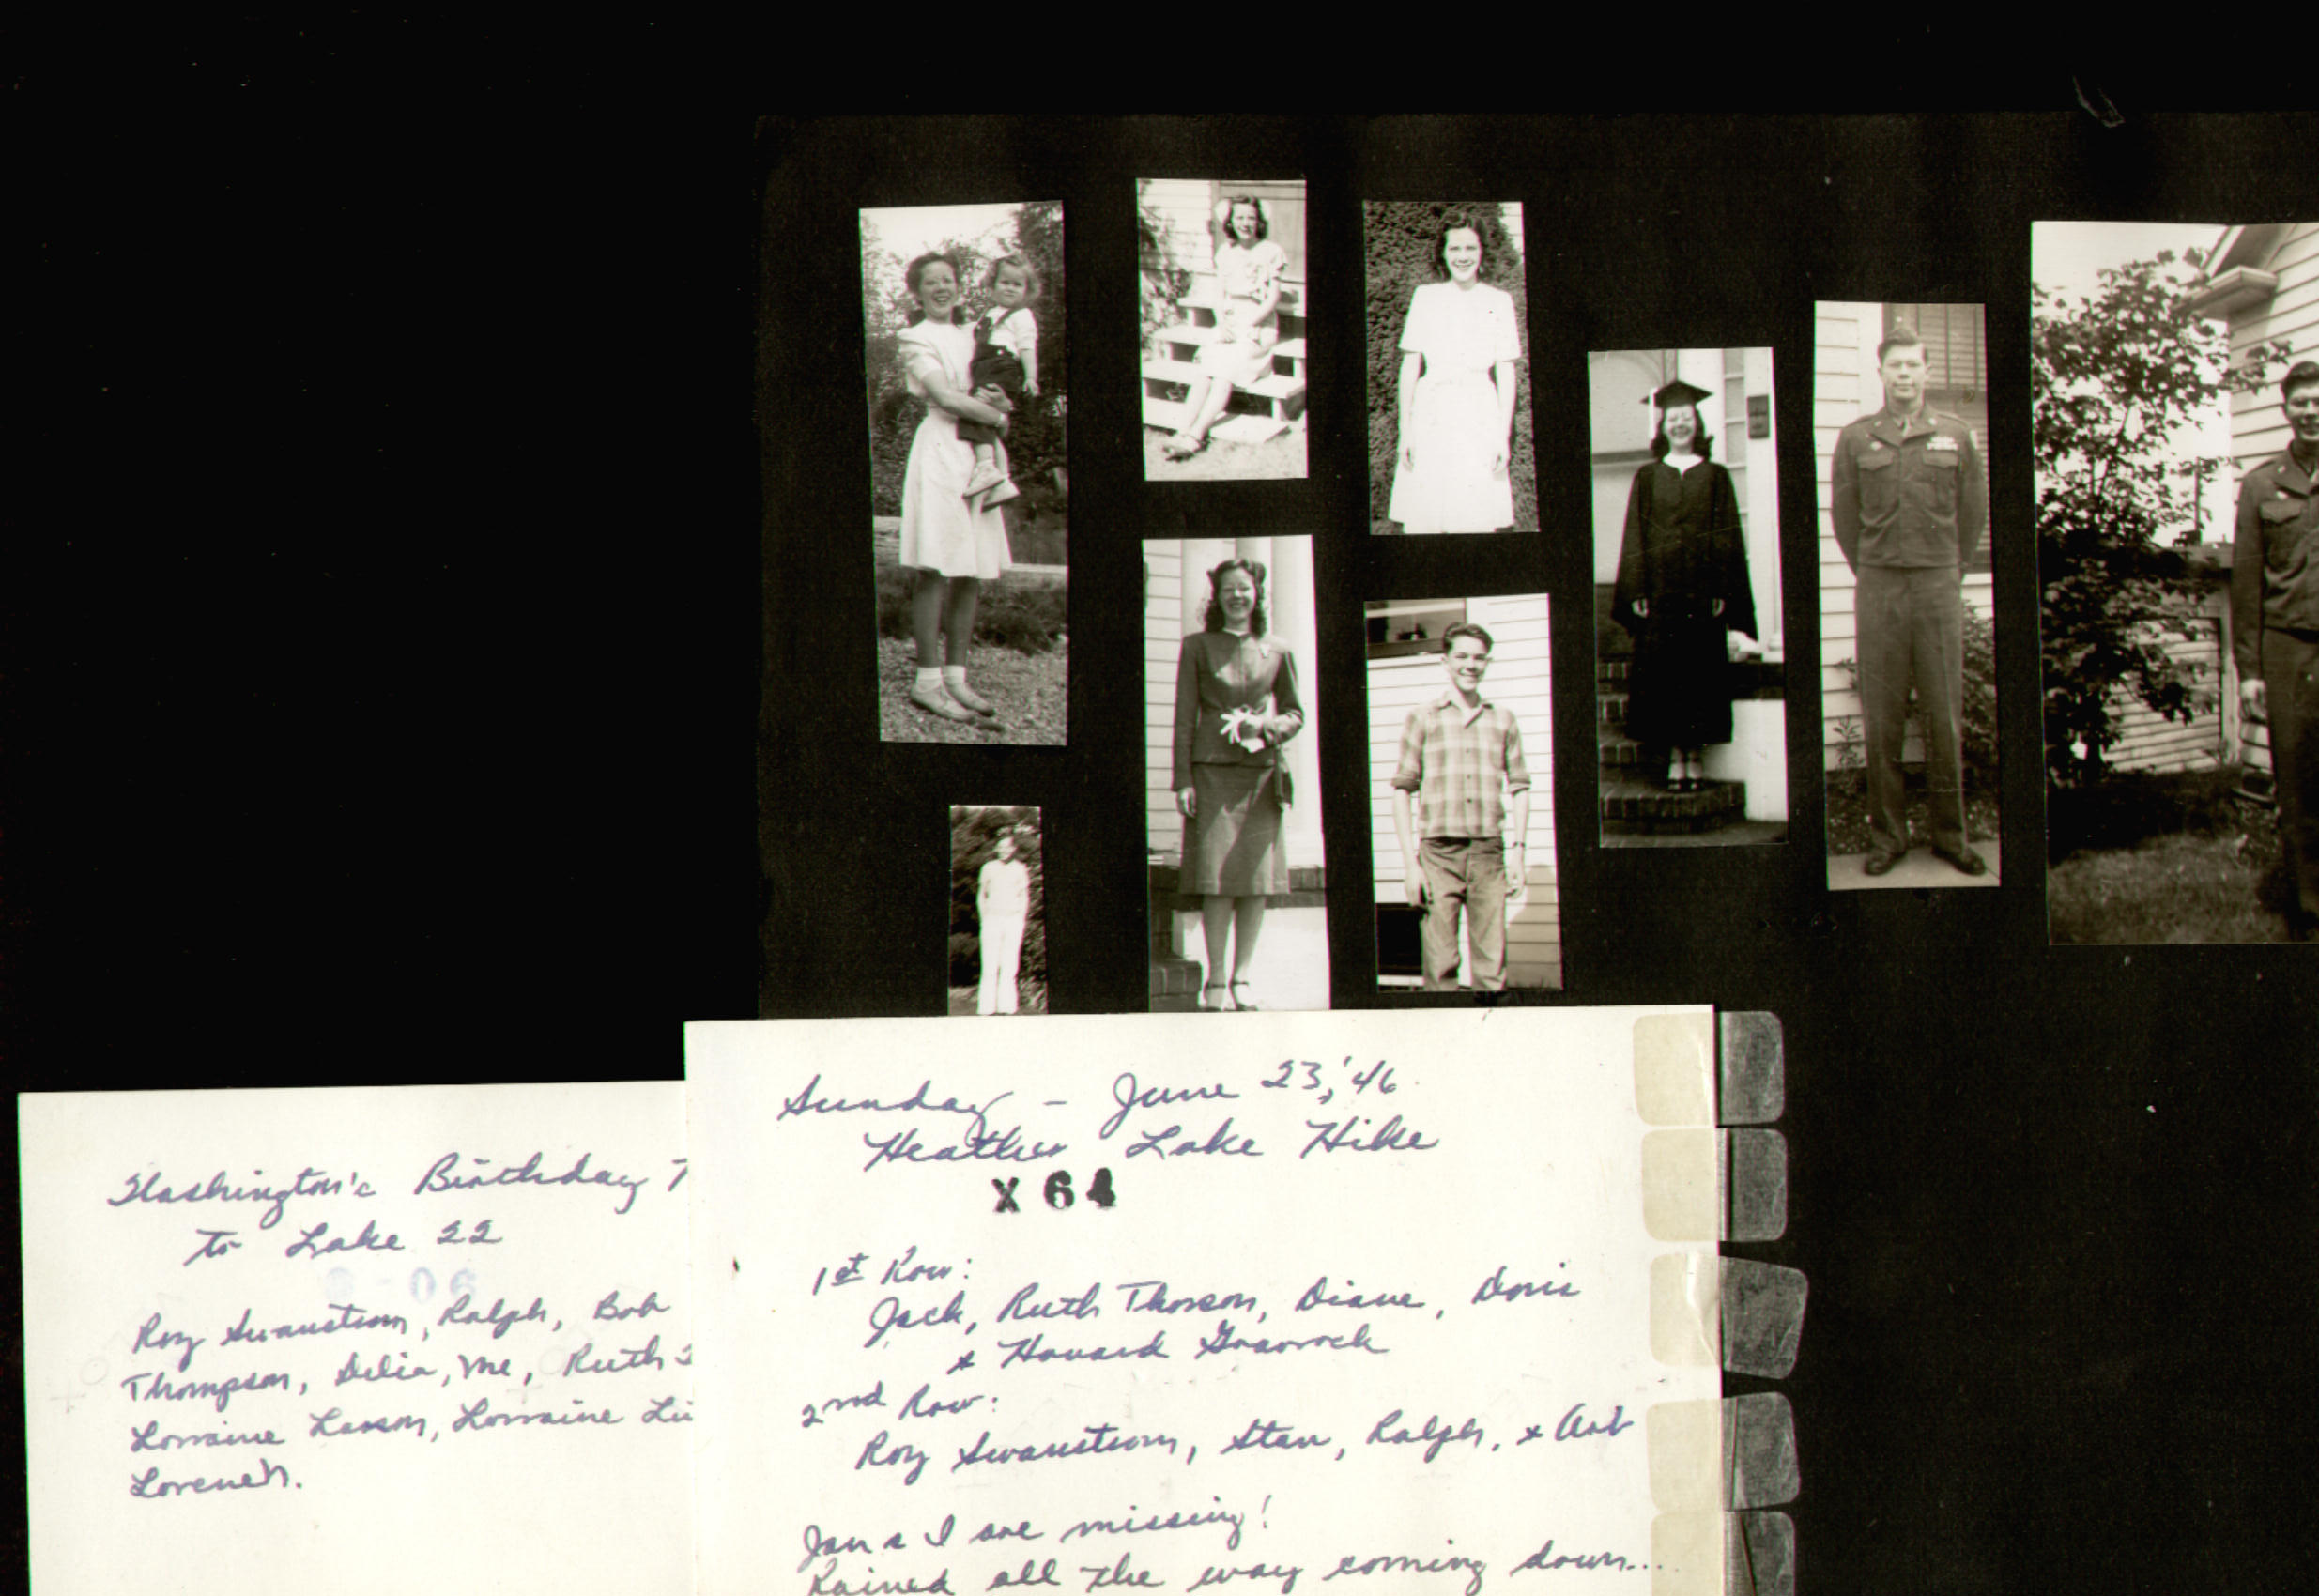 Washington's Birthday
to Lake 22
Roy Swanstrom, Ralph, Bob
Thompson, Delia, me, Ruth
Lorraine Larson, Lorraine
Sunday - June 23, '46
Heather Lake Hike
X 64
1st Row:
Jack, Ruth Thorson, Diane, Doris
& Howard
2nd Row:
Roy Swanstrom, Stan, Ralph, & Art
Jan & I are missing!
Rained all the way coming down...